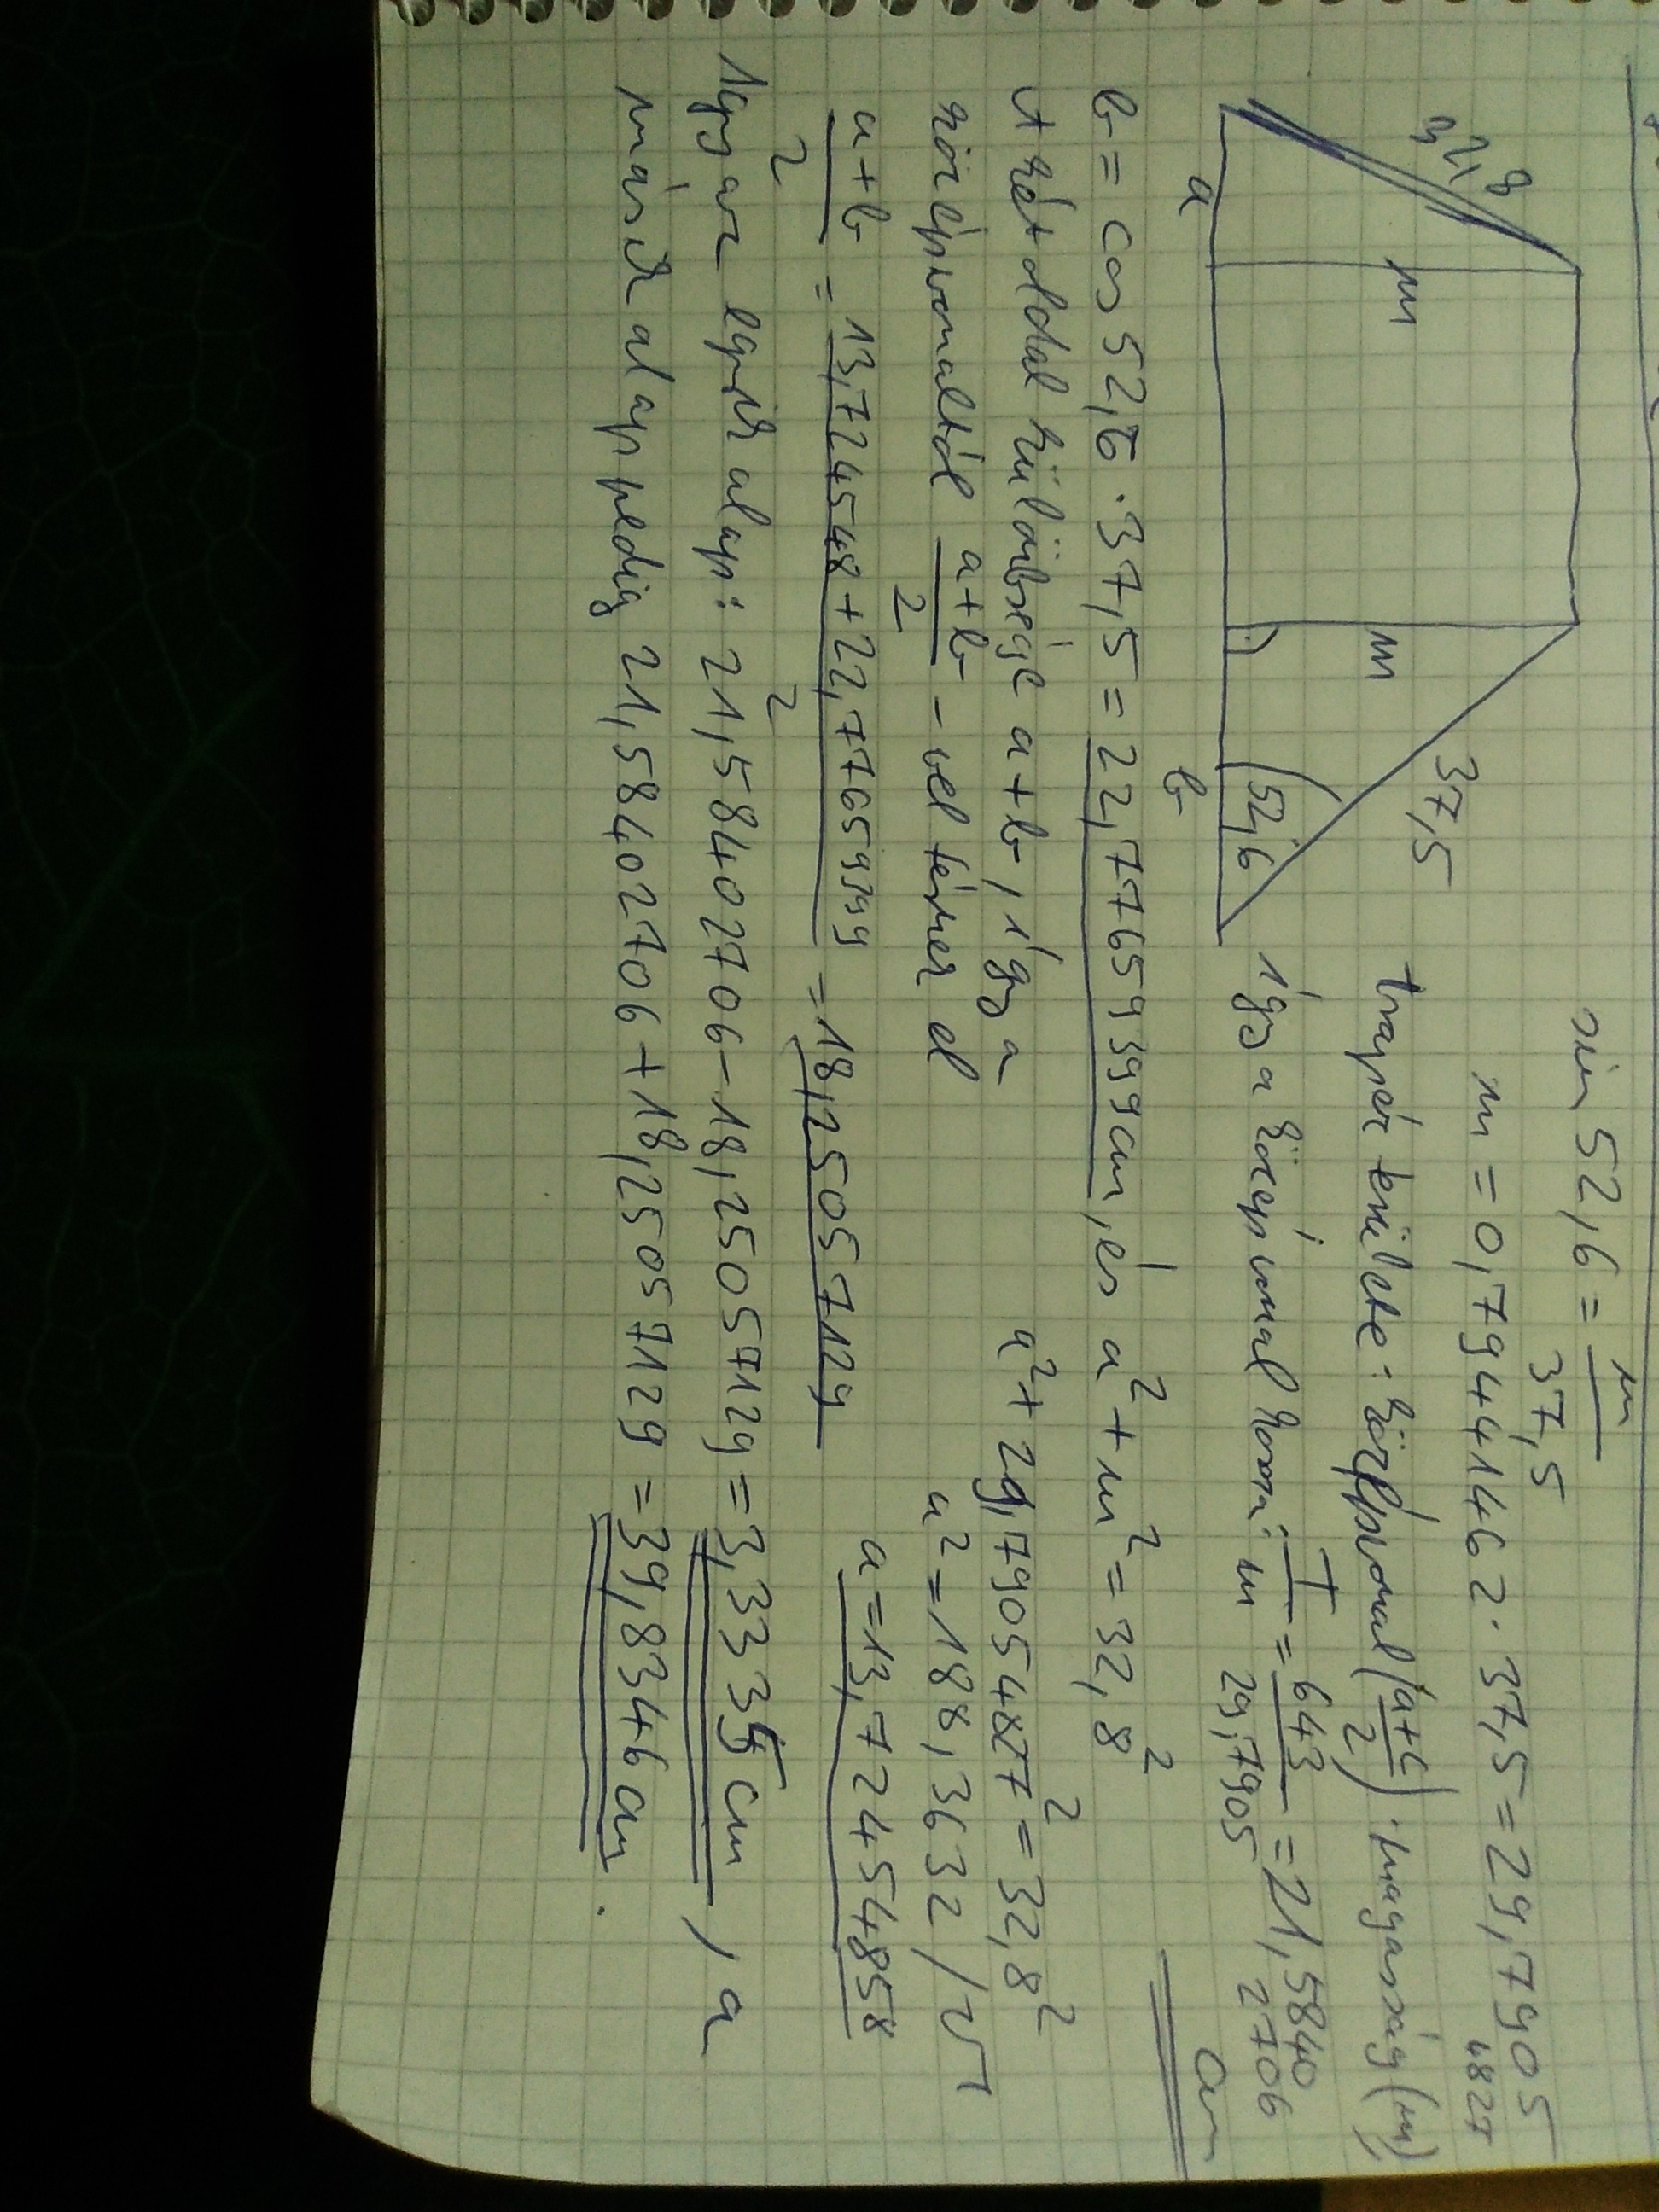 sin 52,6 = m / 37,5
m = 0,794414462 · 37,5 = 29,7905 4827
trapéz területe: középvonal (a+c / 2) · magasság (m),
így a középvonal hossza: T / m = 643 / 29,7905 = 21,5840 2706 cm
32,8
m
m
37,5
52,6
a
b
b = cos 52,6 · 37,5 = 22,77659399 cm, és a² + m² = 32,8²
A két oldal különbsége a+b, így a
a² + 29,79054827² = 32,8²
középvonaltól a+b / 2 - vel térnek el
a² = 188,3632 / √
a = 13,72454858
a+b / 2 = 13,724548 + 22,7765939 / 2 = 18,25057129
Így az egyik alap: 21,58402706 – 18,25057129 = 3,3335 cm, a
másik alap pedig 21,58402706 + 18,25057129 = 39,8346 cm.